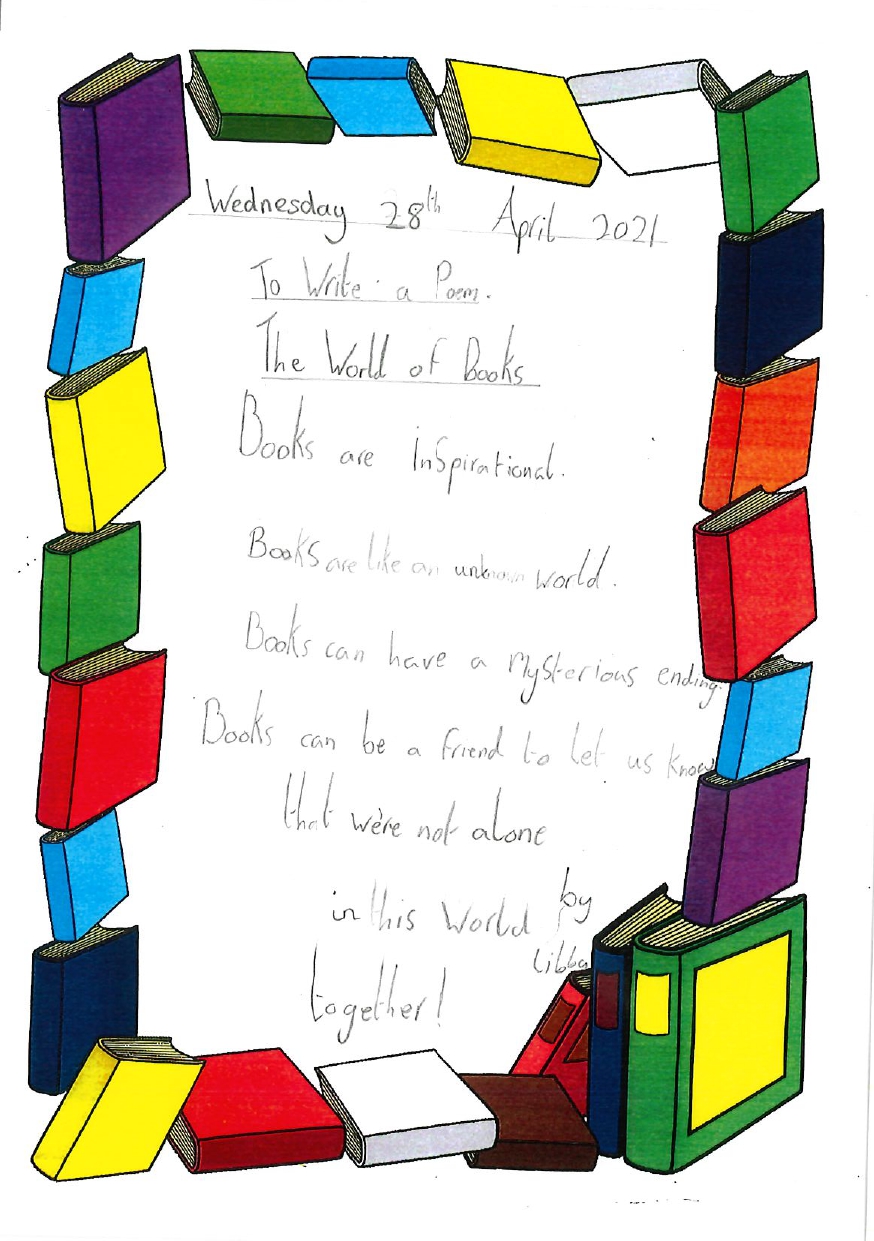 Wednesday 28th April 2021
To Write a Poem.
The World of Books
Books are inspirational.
Books are like an unknown world.
Books can have a mysterious ending.
Books can be a friend to let us know
that we're not alone
in this world
together!
by
Libba